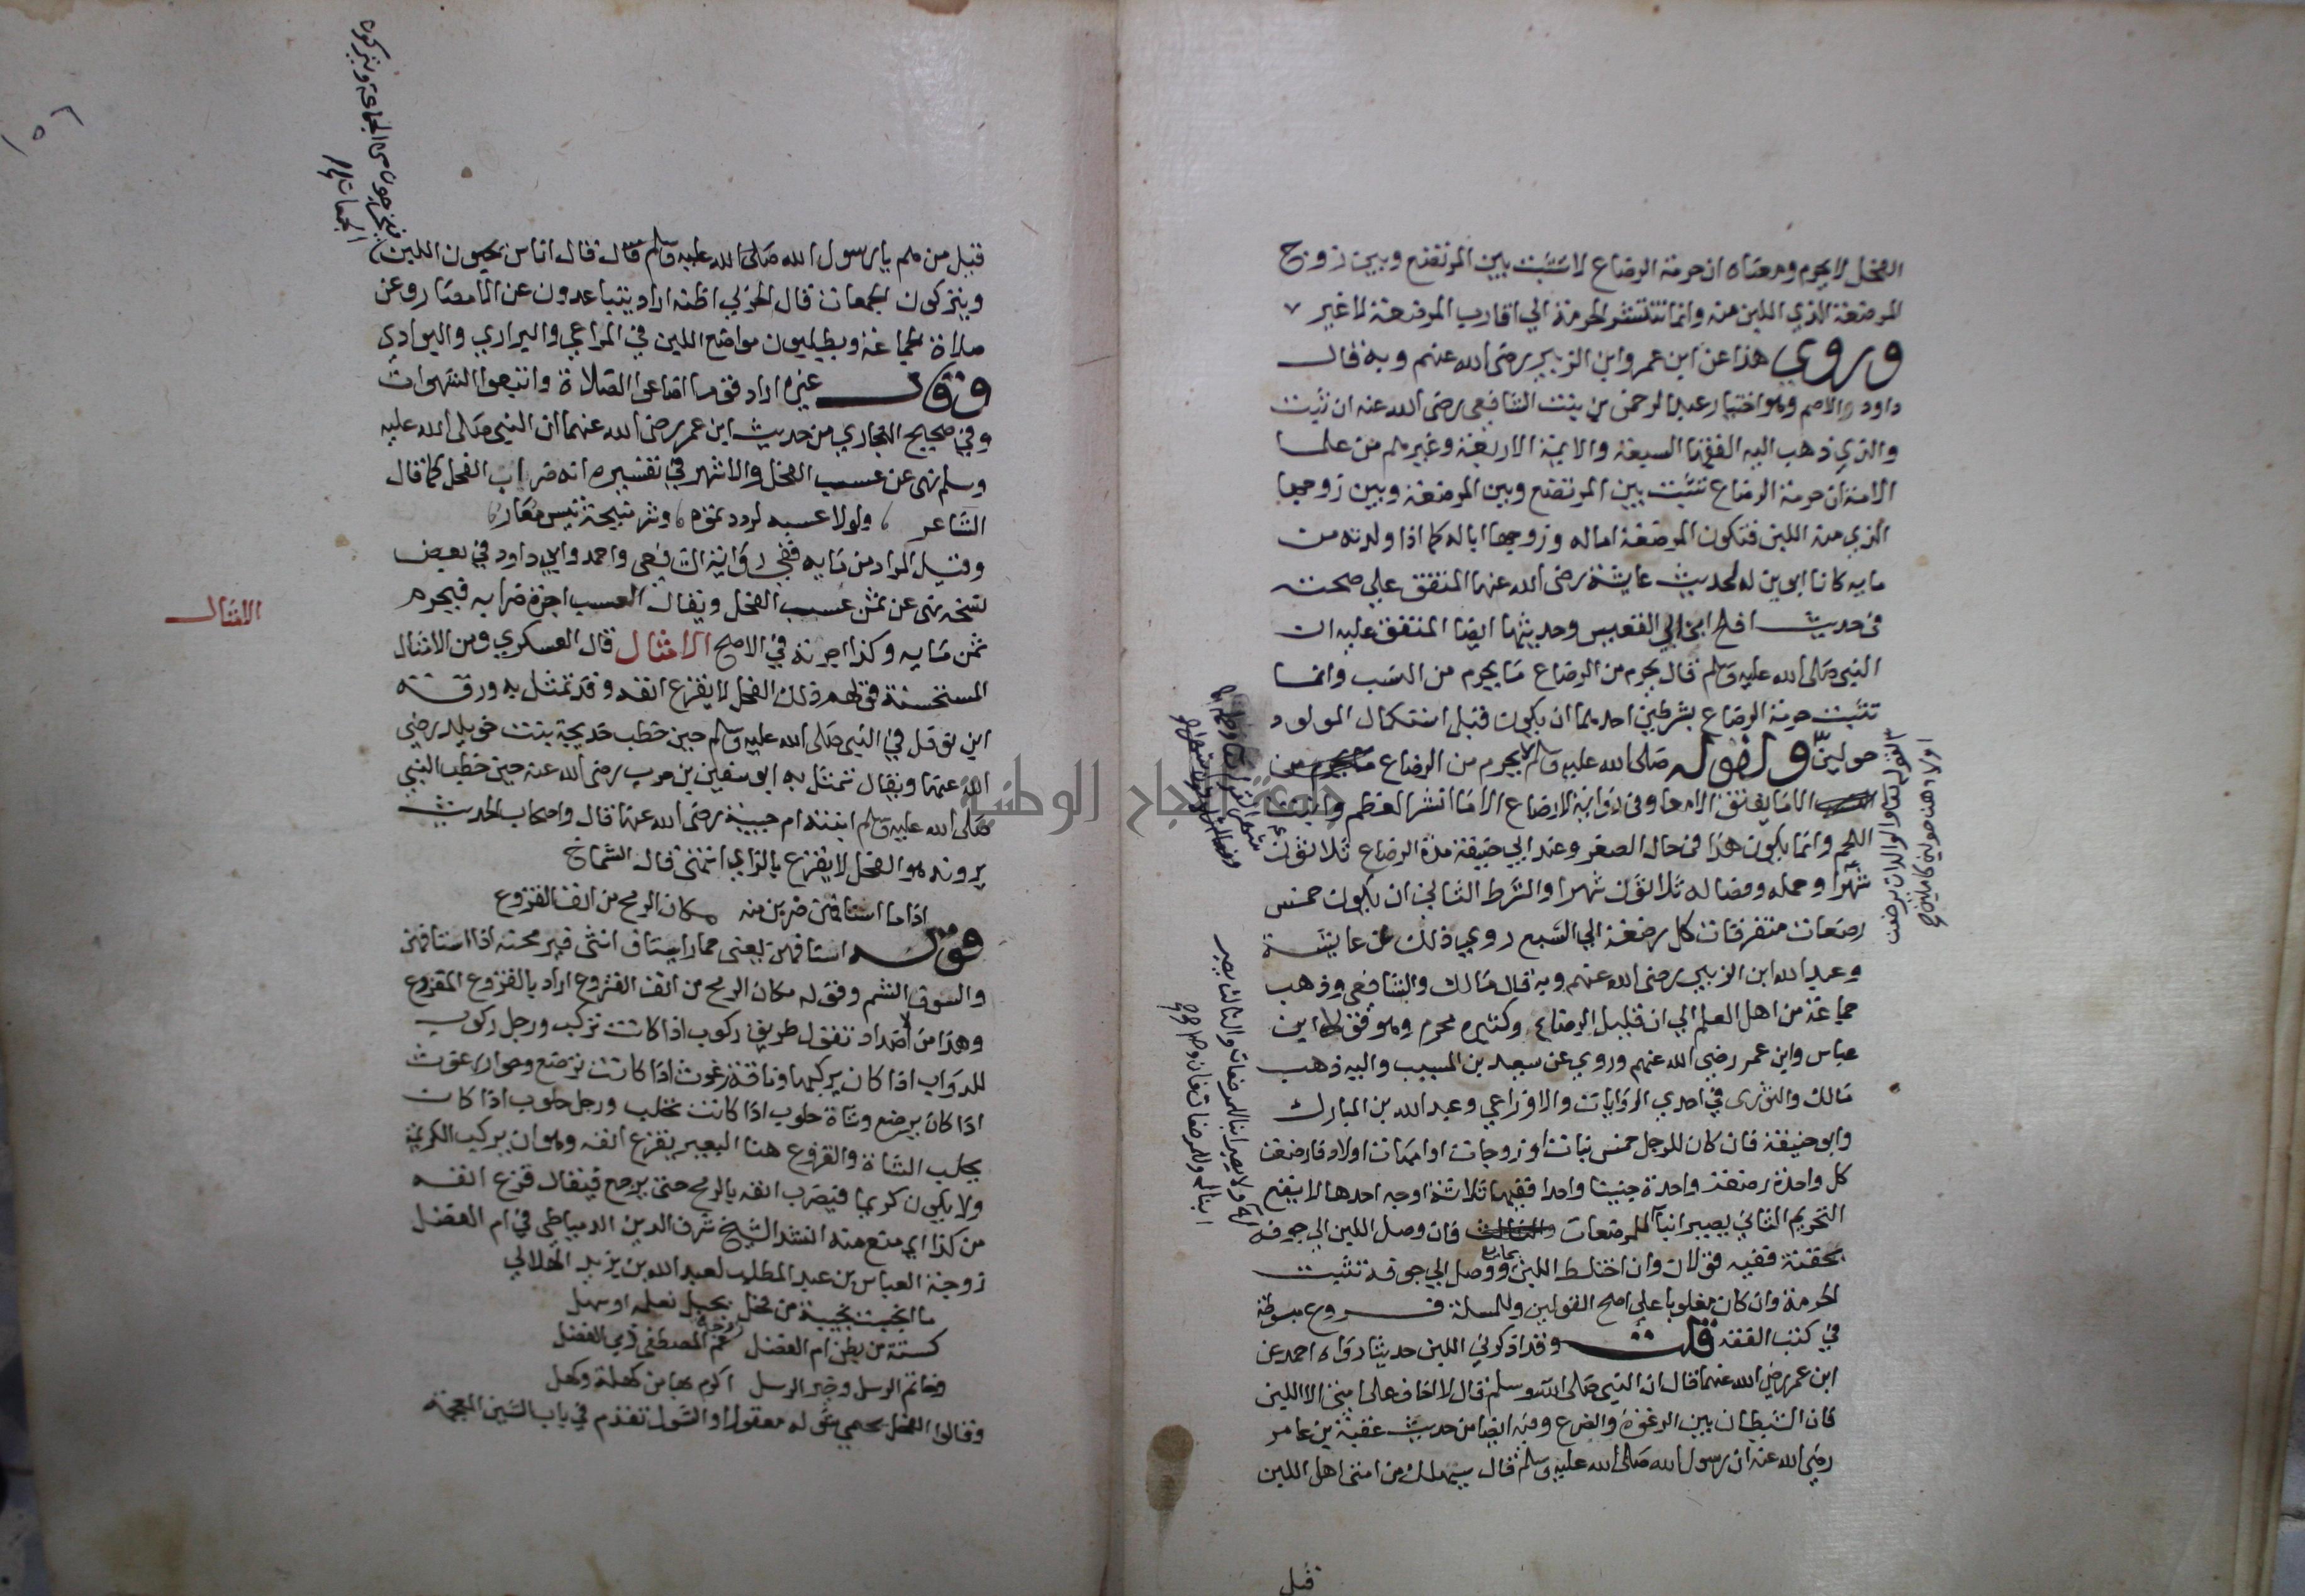 الفحل لا يحرم ومعناه ان حرمة الرضاع لا تثبت بين المرتضع وبين زوج
المرضعة الذي اللبن منه وانما تنتشر الحرمة الي اقارب المرضعة لا غير
وروي هذا عن ابن عمر وابن الزبير رضي الله عنهم وبه قال
داود والاصم وهو اختيار عبد الرحمن بن بنت الشافعي رضي الله عنه
والذي ذهب اليه الفقها السبعة والايمة الاربعة وغيرهم من علما
الامة ان حرمة الرضاع تثبت بين المرتضع وبين المرضعة وبين زوجها
الذي منه اللبن فتكون المرضعة اما له وزوجها ابا له كما اذا ولدته من
مايه كانا ابوين له لحديث عايشة رضي الله عنها المتفق علي صحته
في حديث افلح ابن ابي القعيس وحديثها ايضا المتفق عليه ان
النبي صلى الله عليه وسلم قال يحرم من الرضاع ما يحرم من النسب وانما
تثبت حرمة الرضاع بشرطين احدهما ان يكون قبل استكمال المولود
حولين ولقوله صلى الله عليه وسلم لا يحرم من الرضاع
الا ما يفتق الامعا وفي رواية لا رضاع الا ما انشر العظم وانبت
اللحم وانما يكون هذا في حال الصغر وعند ابي حنيفة مدة الرضاع ثلاثون
شهرا وحمله وفصاله ثلاثون شهرا والشرط الثاني ان يكون خمس
رضعات متفرقات كل رضعة الي الشبع روي ذلك عن عايشة
وعبد الله ابن الزبير رضي الله عنهم وبه قال مالك والشافعي وذهب
جماعة من اهل العلم الي ان قليل الرضاع وكثيره محرم وهو قول ابن
عباس وابن عمر رضي الله عنهم وروي عن سعيد بن المسيب واليه ذهب
مالك والثوري في احدي الروايات والاوزاعي وعبد الله بن المبارك
وابو حنيفة فان كان للرجل خمس بنات او زوجات او امهات اولاد فارضعن
كل واحدة رضعة واحدة جنبيا واحدا ففيها ثلاثة اوجه احدها لا يقع
التحريم الثاني يصير ابنا للمرضعات والثالث فان وصل اللبن الي جوفه
بحقنة ففيه قولان وان اختلط اللبن بمايع ووصل الي جوفه تثبت
الحرمة وان كان مغلوبا علي اصح القولين وللمسلة فروع مبسوطة
في كتب الفقه قلت وقد اذكرني اللبن حديثا رواه احمد عن
ابن عمر رضي الله عنهما قال ان النبي صلى الله وسلم قال لا اخاف علي امتي الا اللبن
فان الشيطان بين الرغوة والضرع وفيه ايضا من حديث عقبة بن عامر
رضي الله عنه ان رسول الله صلى الله عليه وسلم قال سيهلك من امتي اهل اللبن
قيل
القوله تعالي والوالدات يرضعن
اولادهن حولين كاملين صح
قيل من هم يا رسول الله صلى الله عليه وسلم قال قال اناس يحبون اللبن
ويتركون الجمعات قال الحربي اظنه اراد يتباعدون عن الامصار وعن
صلاة الجماعة ويطلبون مواضع اللبن في المراعي والبراري والبوادي
وقال غيره اراد قوما اضاعوا الصلاة واتبعوا الشهوات
وفي صحيح البخاري من حديث ابن عمر رضي الله عنهما ان النبي صلى الله عليه
وسلم نهى عن عسب الفحل والاشهر في تفسيره انه ضراب الفحل كما قال
الشاعر ولولا عسبه لرددتموه وشر منيحة تيس معار
وقيل المراد من مايه ففي رواية الشافعي واحمد وابي داود في بعض
نسخه نهى عن ثمن عسب الفحل ويقال العسب اجرة ضرابه فيحرم
ثمن مايه وكذا اجرته في الاصح الامثال قال العسكري ومن الامثال
المستحسنة قولهم ذلك الفحل لا يقرع انفه وقد تمثل به ورقة
ابن نوفل في النبي صلى الله عليه وسلم حين خطب خديجة بنت خويلد رضي
الله عنها ويقال تمثل به ابو سفين بن حرب رضي الله عنه حين خطب النبي
صلى الله عليه وسلم ابنته ام حبيبة رضي الله عنها قال واصحاب الحديث
يرونه هو الفحل لا يقرع بالراي انتهي قال الشماخ
اذا ما استافهن ضربن منه مكان الرمح من انف القزوع
قوله استافهن يعني حمارا يستاف انثى فيرمحنه اذا استافهن
والسوف الشم وقوله مكان الرمح من انف القزوع اراد بالقزوع المقزوع
وهذا من الاضداد تقول طريق ركوب اذا كانت تركب ورجل ركوب
للدواب اذا كان يركبها وناقة رغوث اذا كانت ترضع وحوار رغوث
اذا كان يرضع وشاة حلوب اذا كانت تحلب ورجل حلوب اذا كان
يحلب الشاة والقزوع هنا البعير يقزع انفه وهو ان يركب الكريمة
ولا يكون كريما فيضرب انفه بالرمح حتى يرجع فيقال قزع انفه
من كذا اي منع منه انشد الشيخ شرف الدين الدمياطي في ام الفضل
زوجة العباس بن عبد المطلب لعبد الله بن يزيد الهلالي
ما انجبت نجيبة من فحل بجبل نعلمه او سهل
كستة من بطن ام الفضل زوجة عم المصطفى ذي الفضل
وخاتم الرسل وخير الرسل اكرم بها من كهلة وكهل
وقالوا الفحل يحمي شوله معقولا والشول تقدم في باب الشين المعجمة
فيخرجون من الجماعة ويتركون
الجمعات
الامثال
جامعة النجاح الوطنية